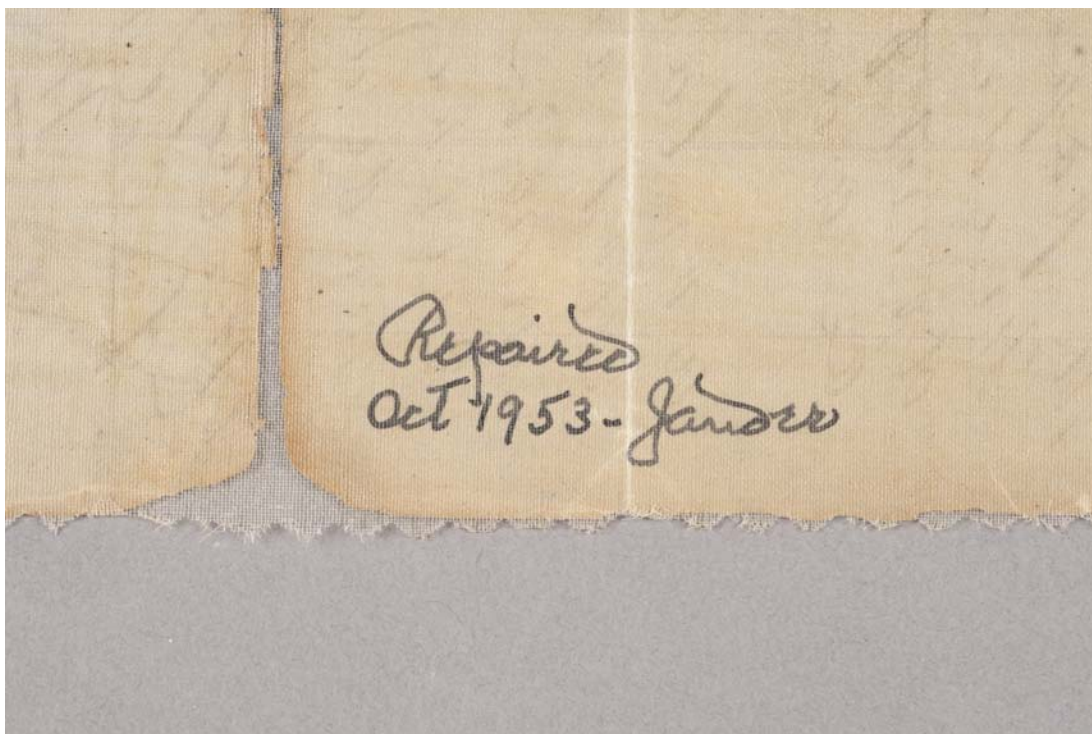 Repaired
Oct 1953 - Jander